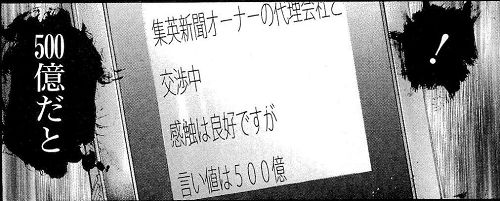 ！
集英新聞オーナーの代理会社と
交渉中
感触は良好ですが
言い値は５００億
500億だと